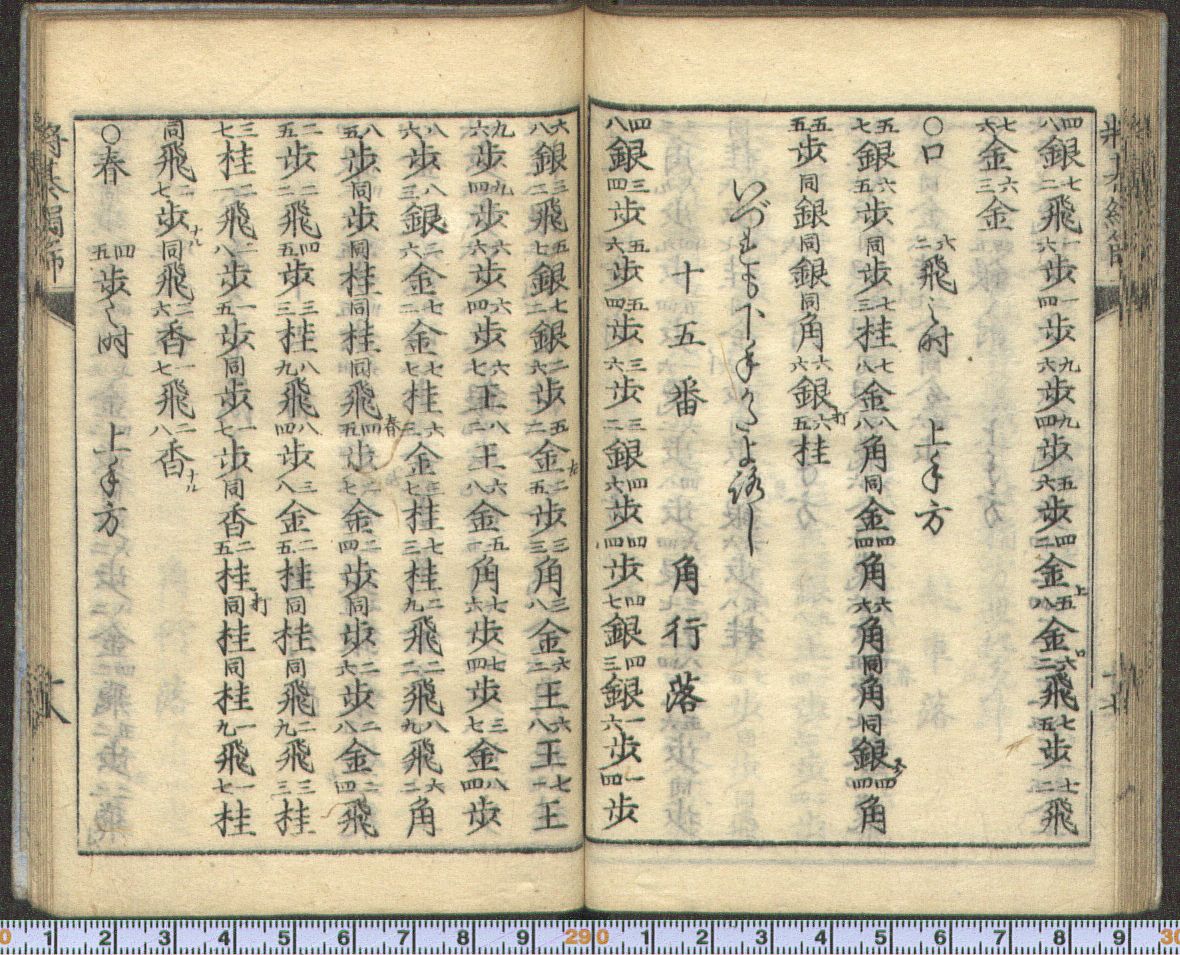 四八銀 七二飛 一六歩 一四歩 九六歩 九四歩 五六歩 四二金上 五八金 六二飛ロ 七五歩 七二飛
七六金 六三金
〇口 六二飛之時 上手方
五七銀 六五歩 同歩 七三桂 七八金 八八角 同金 四四角 六六角 同角 同銀 四四角
五五歩 同銀 同銀 同角 六六銀 六五桂打
いづれも下手かたよろし
十五番 角行落
四八銀 三四歩 五六歩 五四歩 三六歩 三二銀 四六歩 四四歩 四七銀 四三銀 一六歩 一四歩
六八銀 三二飛 五七銀 七二銀 二六歩 五二金左 二五歩 三三角 三八金 六二王 六八王 七一王
九六歩 九四歩 六六歩 六四歩 六七王 八二王 六八金 五一角 七六歩 七四歩 三七金 八四歩
八六歩 八三銀 二六金 七二金 七七桂 六三金 三七桂 七三桂 二九飛 二二飛 八九飛 六二角
八五歩 同歩 同桂 同桂 同飛 四五歩春 二七金 二四歩 同歩 二六歩 二八金 二四飛
二五歩 二二飛 四五歩 三三桂 八九飛 八四歩 三八金 二五桂 同桂 同飛 二九飛 三三桂
三七桂 二一飛 二八歩 一五歩 同歩 一七歩 同香 二五桂打 同桂 同桂 一九飛 一七桂
同飛 二七歩ナル 同飛 二六香 一七飛 二八香ナル
〇春 四五歩之時 上手方